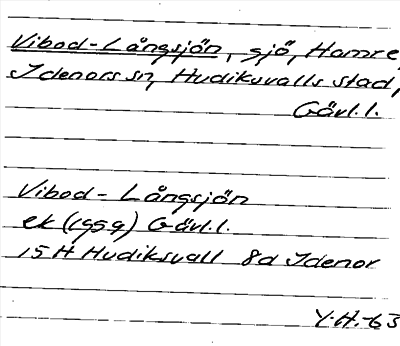 Vibod-Långsjön, sjö, Hamre,
Idenors sn, Hudiksvalls stad,
Gävl.l.
Vibod-Långsjön
ek (1959) Gävl.l.
15 H Hudiksvall 8d Idenor
Y.H.-63